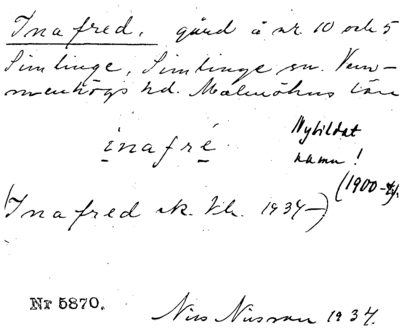 Inafred, gård å nr. 10 och 5
Simlinge, Simlinge sn. Vem-
menhögs hd. Malmöhus län
inafré
Nybildat
namn!
(1900-t).
(Inafred sk. Vh. 1934-)
Nr 5870.
Nils Nilsson 1934.